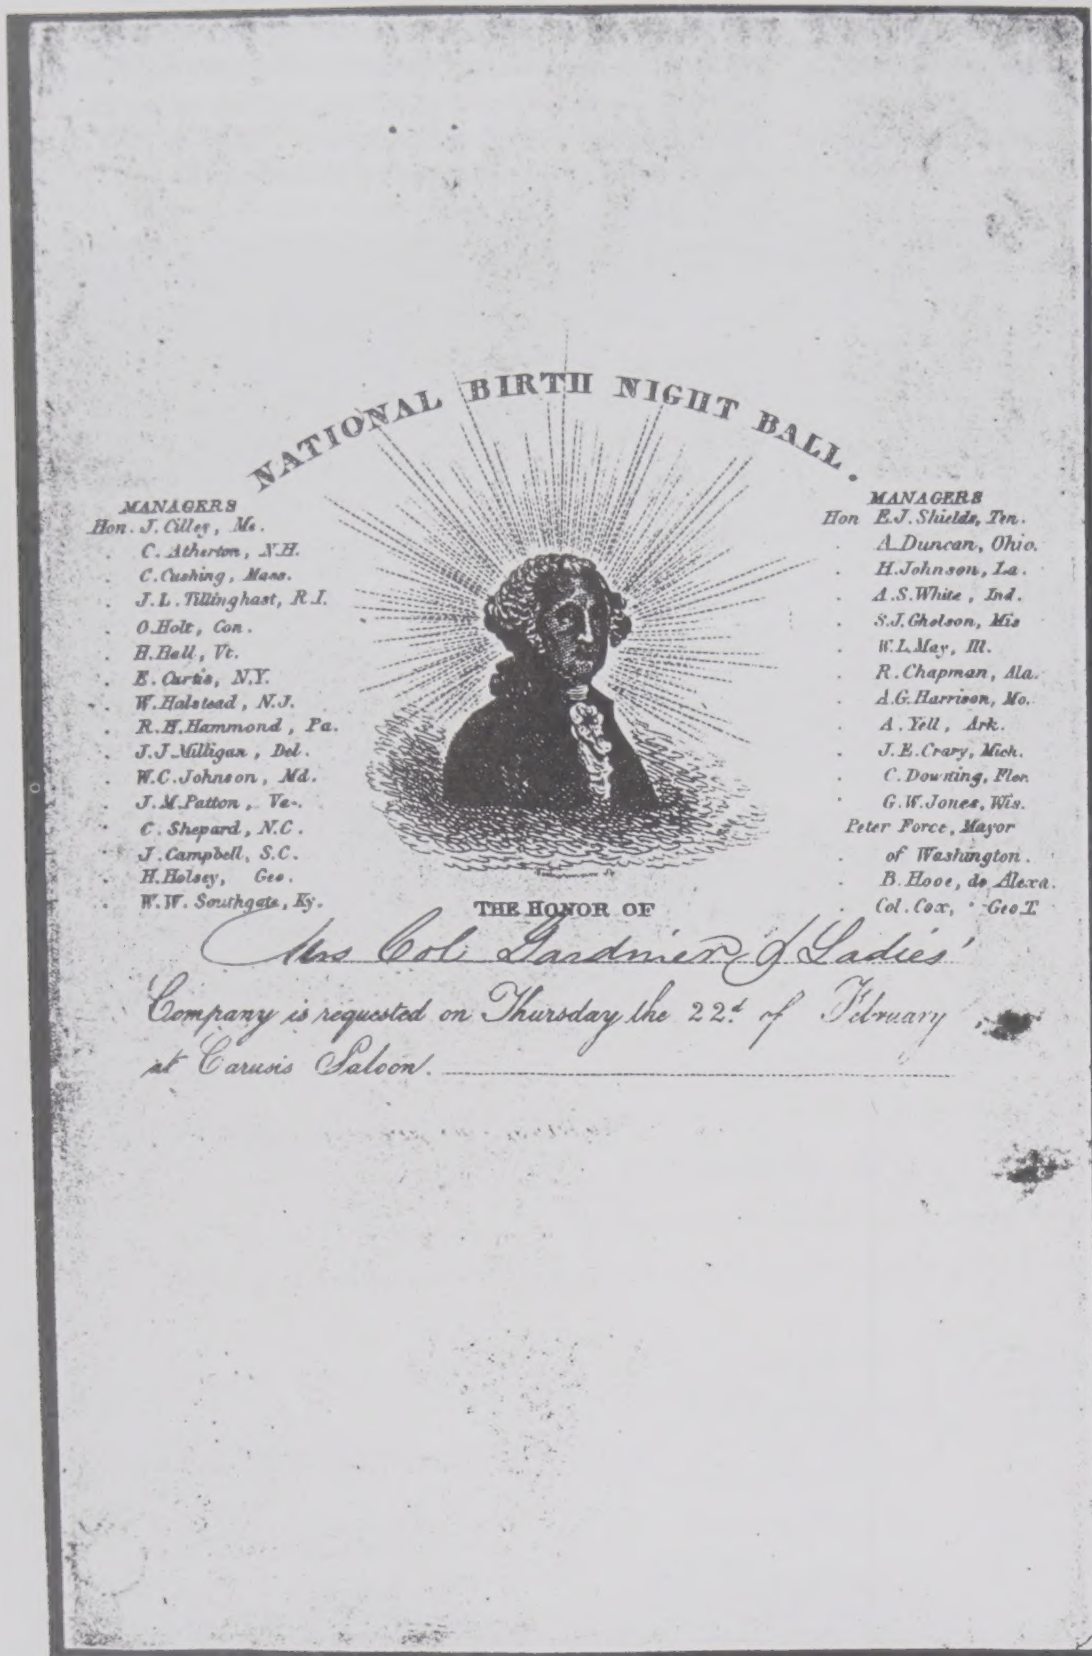 NATIONAL BIRTH NIGHT BALL.
MANAGERS
Hon. J. Cilley, Me.
. C. Atherton, N.H.
. C. Cushing, Mass.
. J. L. Tillinghast, R.I.
. O. Holt, Con.
. H. Hall, Vt.
. E. Curtis, N.Y.
. W. Halstead, N.J.
. R. H. Hammond, Pa.
. J. J. Milligan, Del.
. W. C. Johnson, Md.
. J. M. Patton, Va.
. C. Shepard, N.C.
. J. Campbell, S.C.
. H. Holsey, Geo.
. W. W. Southgate, Ky.
MANAGERS
Hon E. J. Shields, Ten.
. A. Duncan, Ohio.
. H. Johnson, La.
. A. S. White, Ind.
. S. J. Gholson, Mis
. W. L. May, Ill.
. R. Chapman, Ala.
. A. G. Harrison, Mo.
. A. Yell, Ark.
. J. E. Crary, Mich.
. C. Downing, Flor.
. G. W. Jones, Wis.
Peter Force, Mayor
. of Washington.
. B. Hooe, do Alexa.
. Col. Cox, " Geo. T
THE HONOR OF
Mrs Col. Gardiner & Ladies'
Company is requested on Thursday the 22d. of February
at Carusis Saloon.